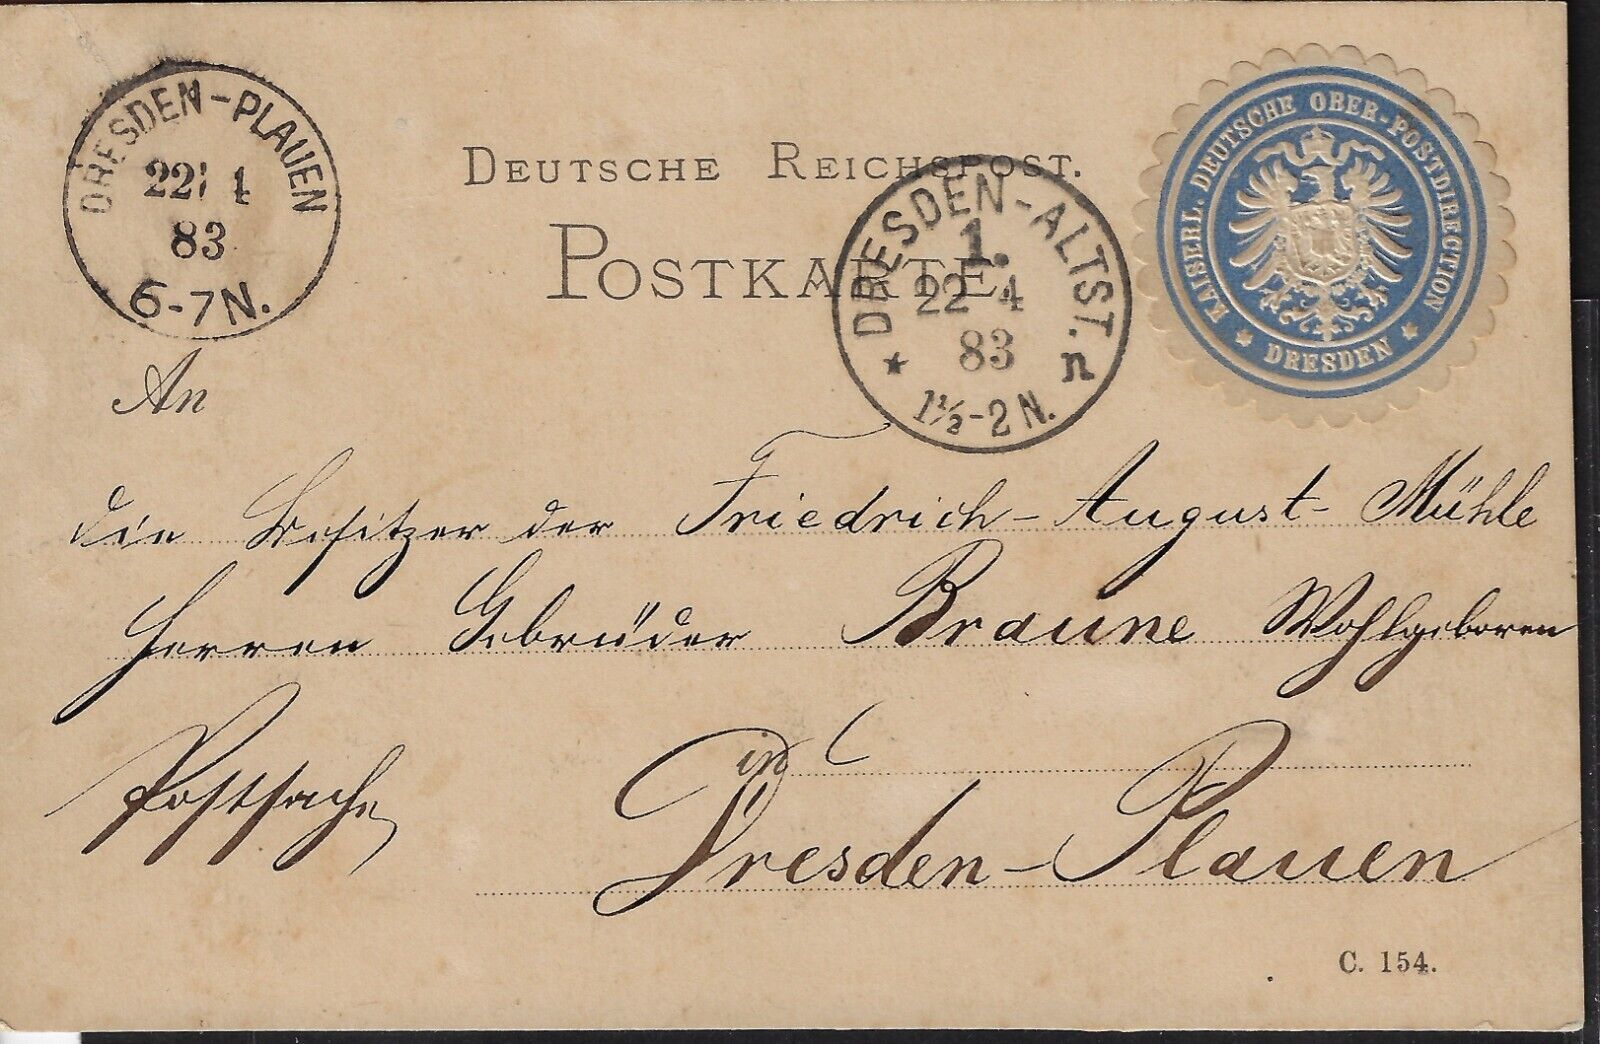 DRESDEN-PLAUEN
22 4
83
6-7N.
DEUTSCHE REICHSPOST.
POSTKARTE
DRESDEN-ALTST.
1.
22 4
83
n
1½-2N.
KAISERL. DEUTSCHE OBER-POSTDIRECTION
DRESDEN
An
die Besitzer der Friedrich-August-Mühle
Herren Gebrüder Braune Wohlgeboren
Postsache
in
Dresden-Plauen
C. 154.